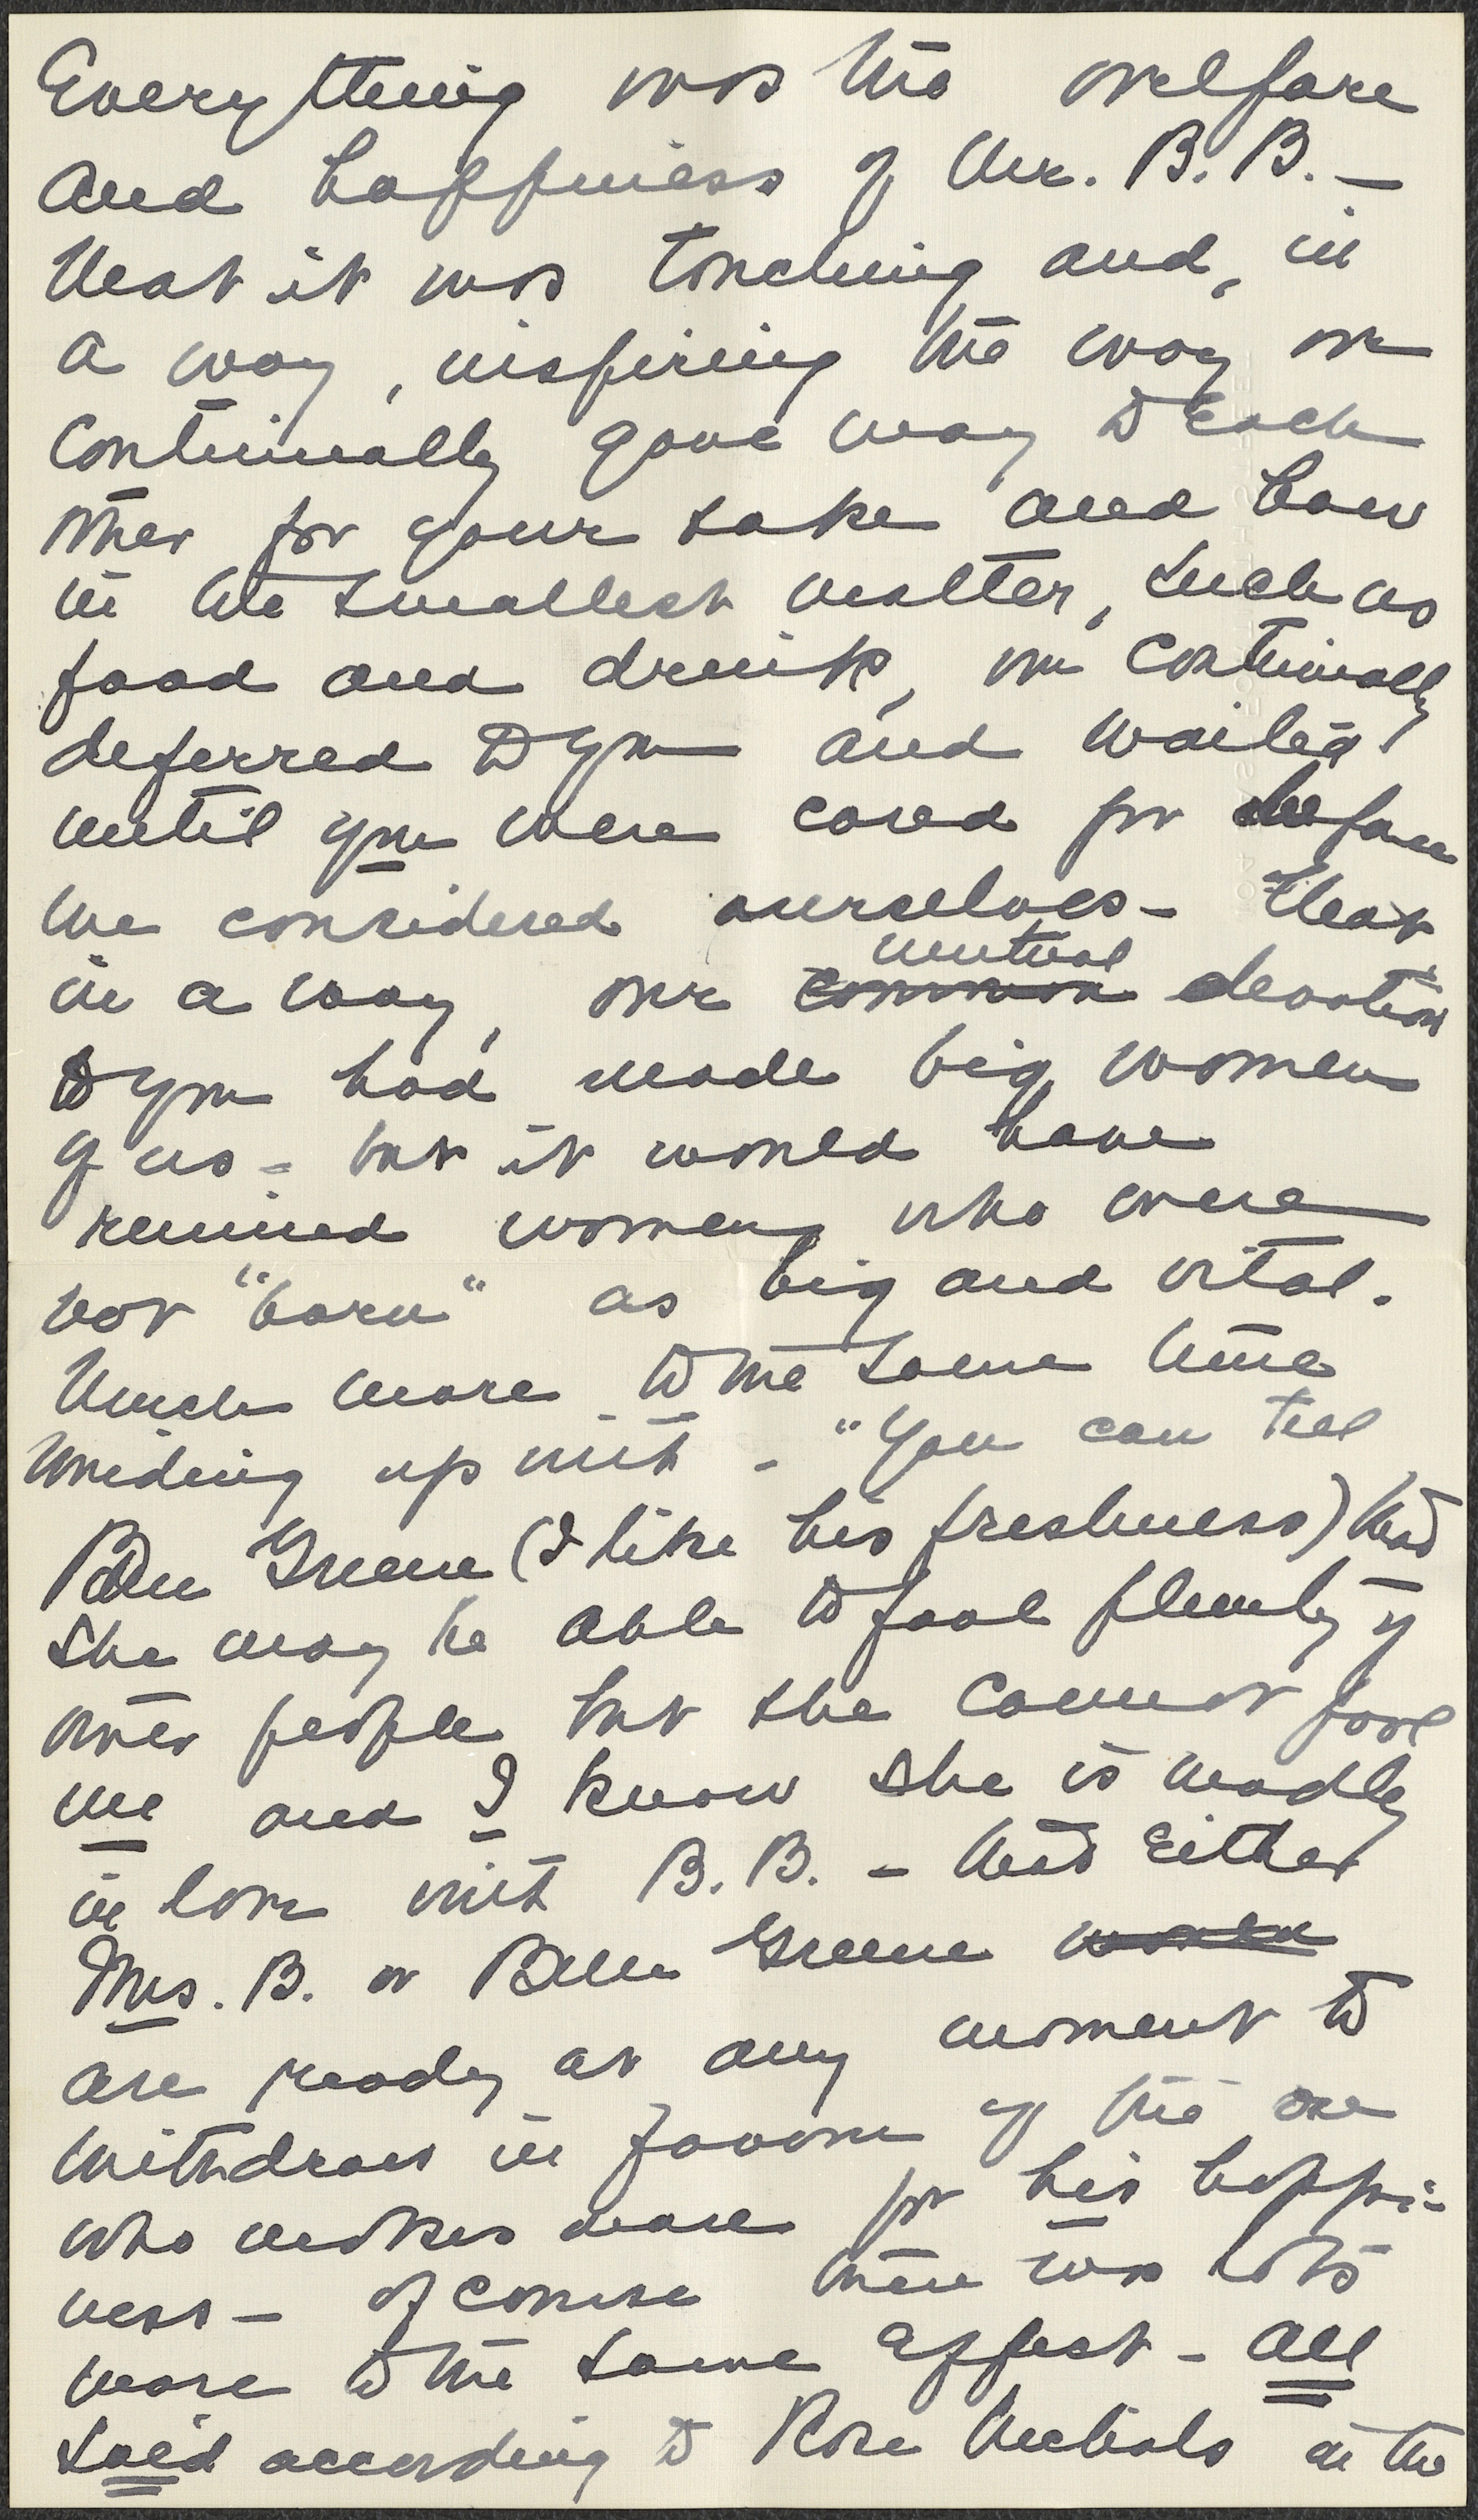 Everything was the welfare
and happiness of Mr. B. B. –
that it was touching and, in
a way, inspiring the way we
continually gave way to each
other for your sake and how
in the smallest matter, such as
food and drink, we continually
deferred to you and waited
until you were cared for before
we considered ourselves – that
in a way, our common mutual devotion
to you had made big women
of us – but it would have
ruined women who were
not "born" as big and vital.
Much more to the same tune
winding up with – "You can tell
Belle Greene (I like his freshness) that
she may be able to fool plenty of
other people but she cannot fool
me and I know she is madly
in love with B. B. – that either
Mrs. B. or Belle Greene would
are ready at any moment to
withdraw in favour of the one
who makes more for his happi-
ness – of course there was lots
more to the same effect – all
said according to Rose Nichols in the